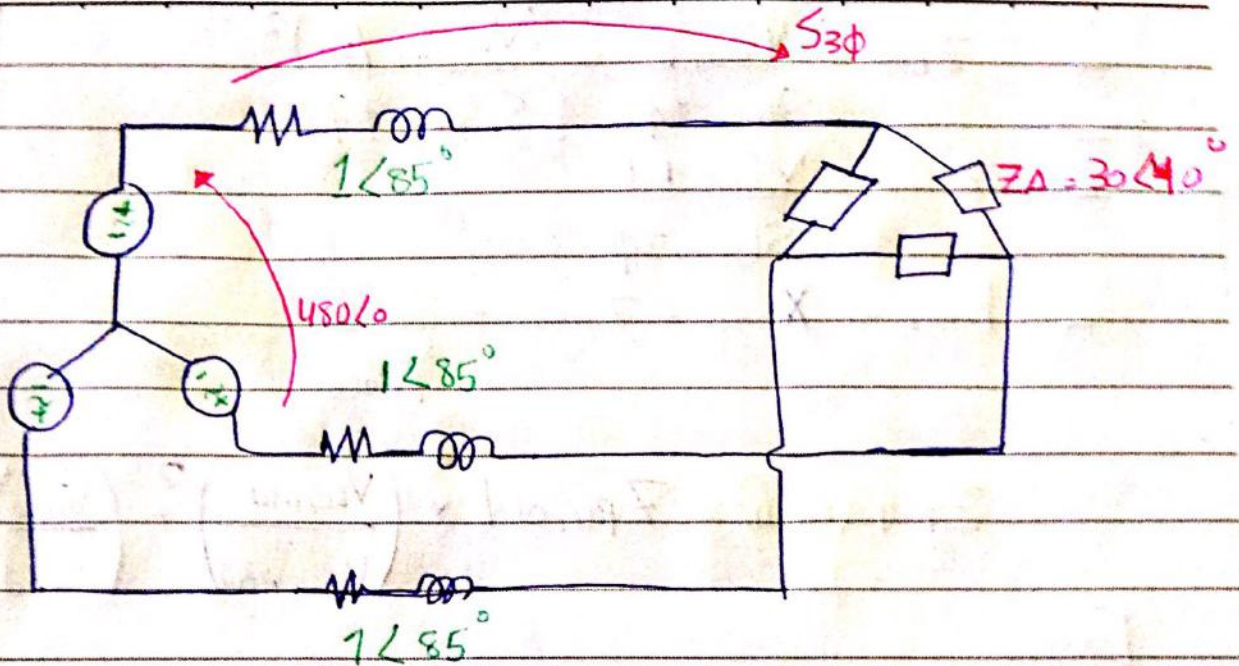 S3φ
1∠85°
Z∆ = 30∠40°
480∠0
1∠85°
1∠85°